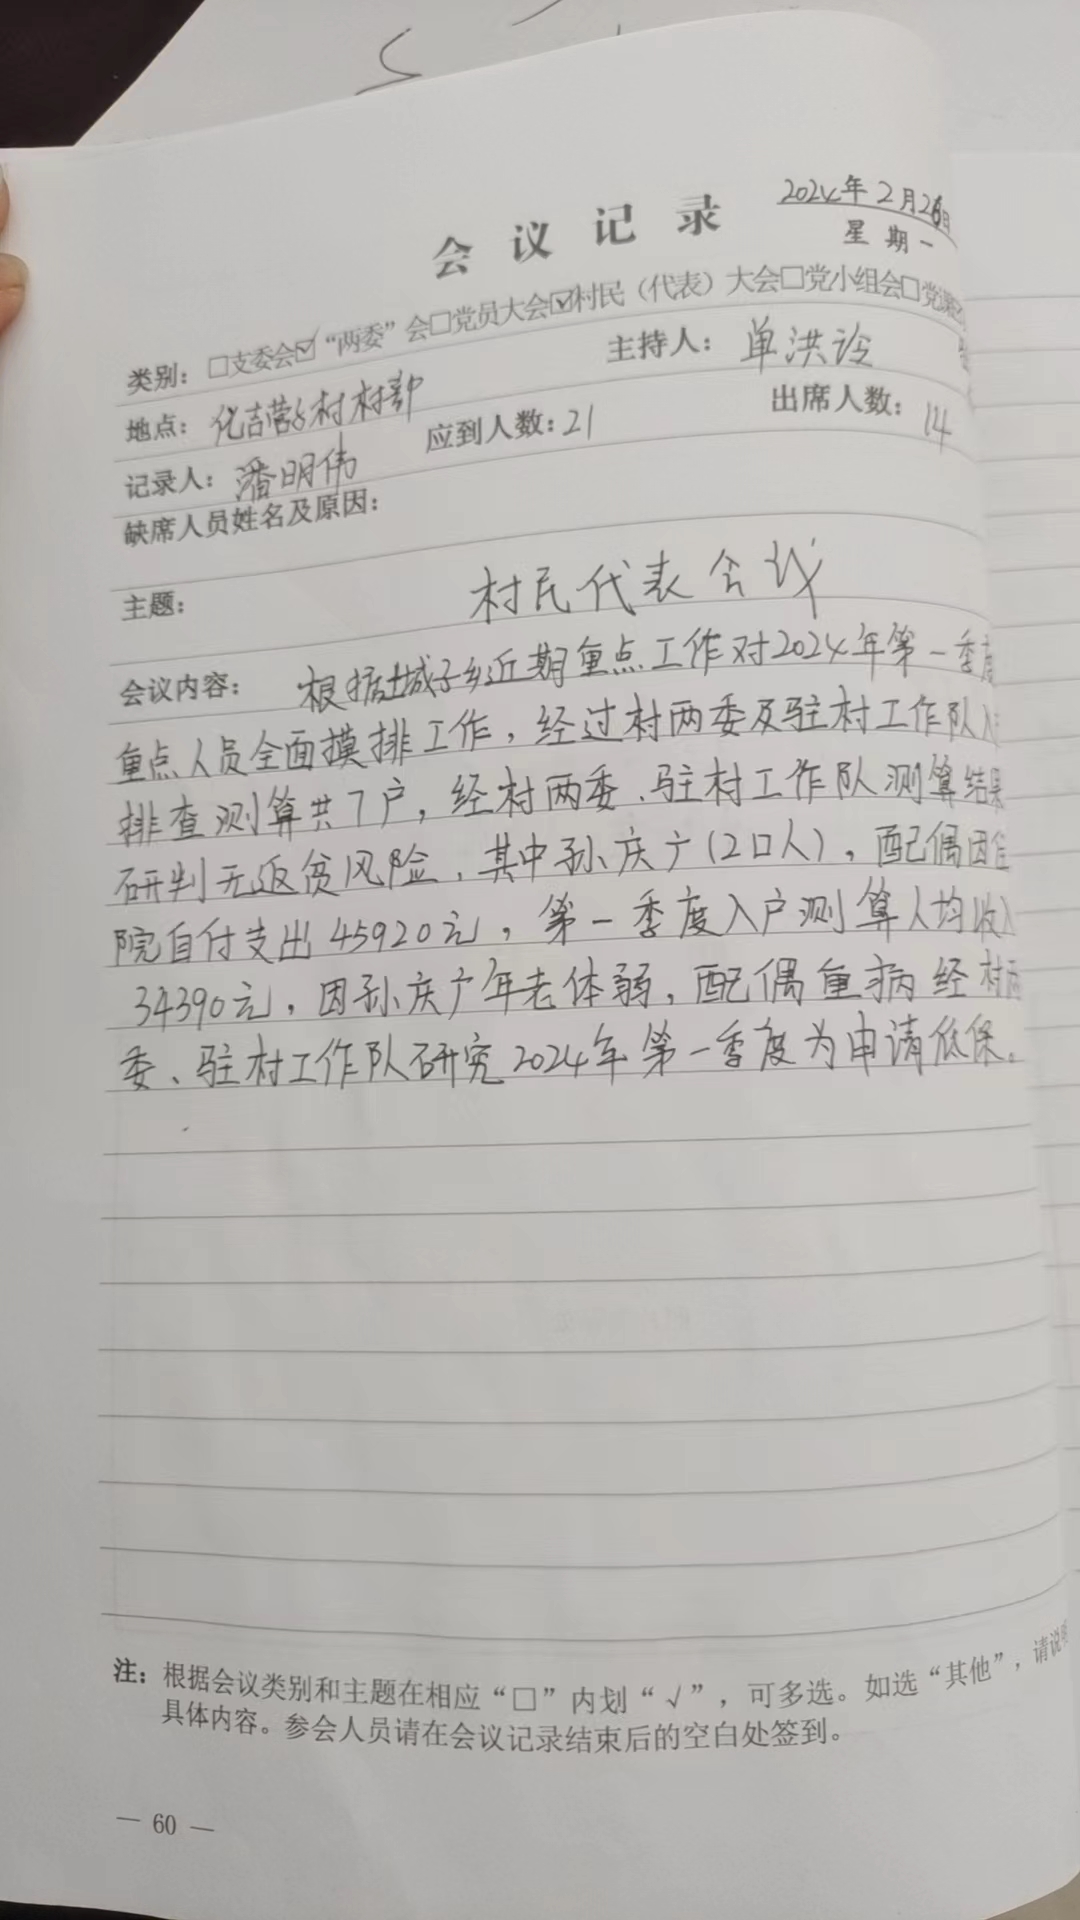 2024年2月26日
会议记录
星期一
类别：□支委会☑“两委”会□党员大会☑村民（代表）大会□党小组会□党课
地点：化吉营子村村部 主持人：单洪
记录人：潘明伟 应到人数：21 出席人数：14
缺席人员姓名及原因：
主题： 村民代表会议
会议内容： 根据土城子乡近期重点工作对2024年第一季度
重点人员全面摸排工作，经过村两委及驻村工作队入
排查测算共7户，经村两委、驻村工作队测算结果
研判无返贫风险，其中孙庆广（2口人），配偶因住
院自付支出45920元，第一季度入户测算人均收入
34390元，因孙庆广年老体弱，配偶重病经村两
委、驻村工作队研究2024年第一季度为申请低保。
注：根据会议类别和主题在相应“□”内划“√”，可多选。如选“其他”，请说明
具体内容。参会人员请在会议记录结束后的空白处签到。
— 60 —